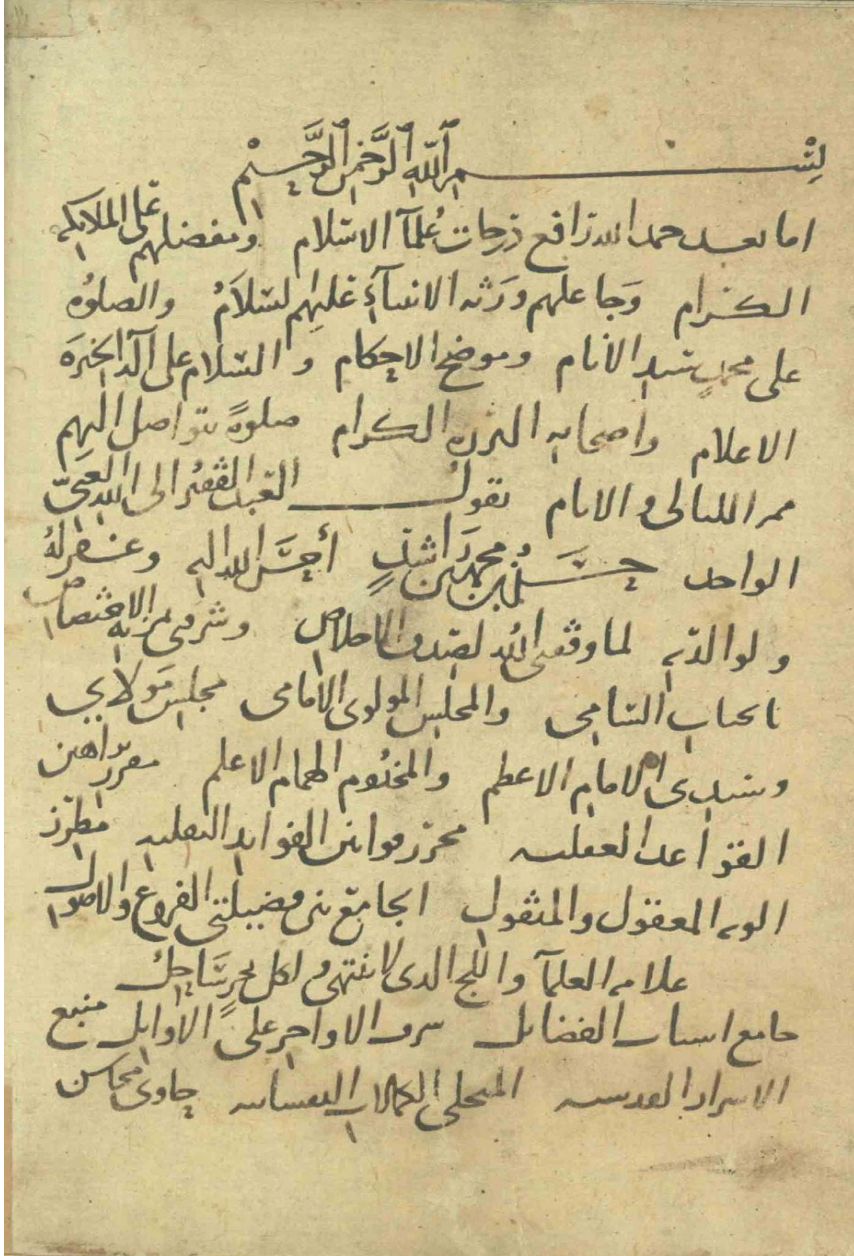 بسم الله الرحمن الرحيم
اما بعد حمد الله رافع درجات علمآ الاسلام ومفضلهم على الملايكه
الكرام وجاعلهم ورثه الانبيآء عليهم السلام والصلوه
على محمد سيد الأنام وموضح الاحكام والسلام على آله الخيرة
الاعلام واصحابه البرره الكرام صلوة تتواصل اليهم
ممر الليالي والايام يقول العبد الفقير الى الله الغني
الواحد حسن بن محمد بن راشد أحسن الله اليه وغفر له
ولوالديه لما وفقني الله لصدق الاخلاص وشرفني بمزية الاختصاص
بالجناب السامي والمجلس المولوي الامامي مجلس مولاي
وسيدي الامام الاعظم والمخدوم الهمام الاعلم مقرر براهين
القواعد العقليه محرر قوانين الفوايد النقليه مطرز
الويه المعقول والمنقول الجامع بين فضيلتي الفروع والاصول
علامه العلمآ واللج الذي لا ينتهي ولكل بحر ساحل
جامع اسباب الفضايل شرف الاواخر على الاوايل منبع
الاسرار القدسيه المتحلي الكمالات النفسانيه حاوي محاسن